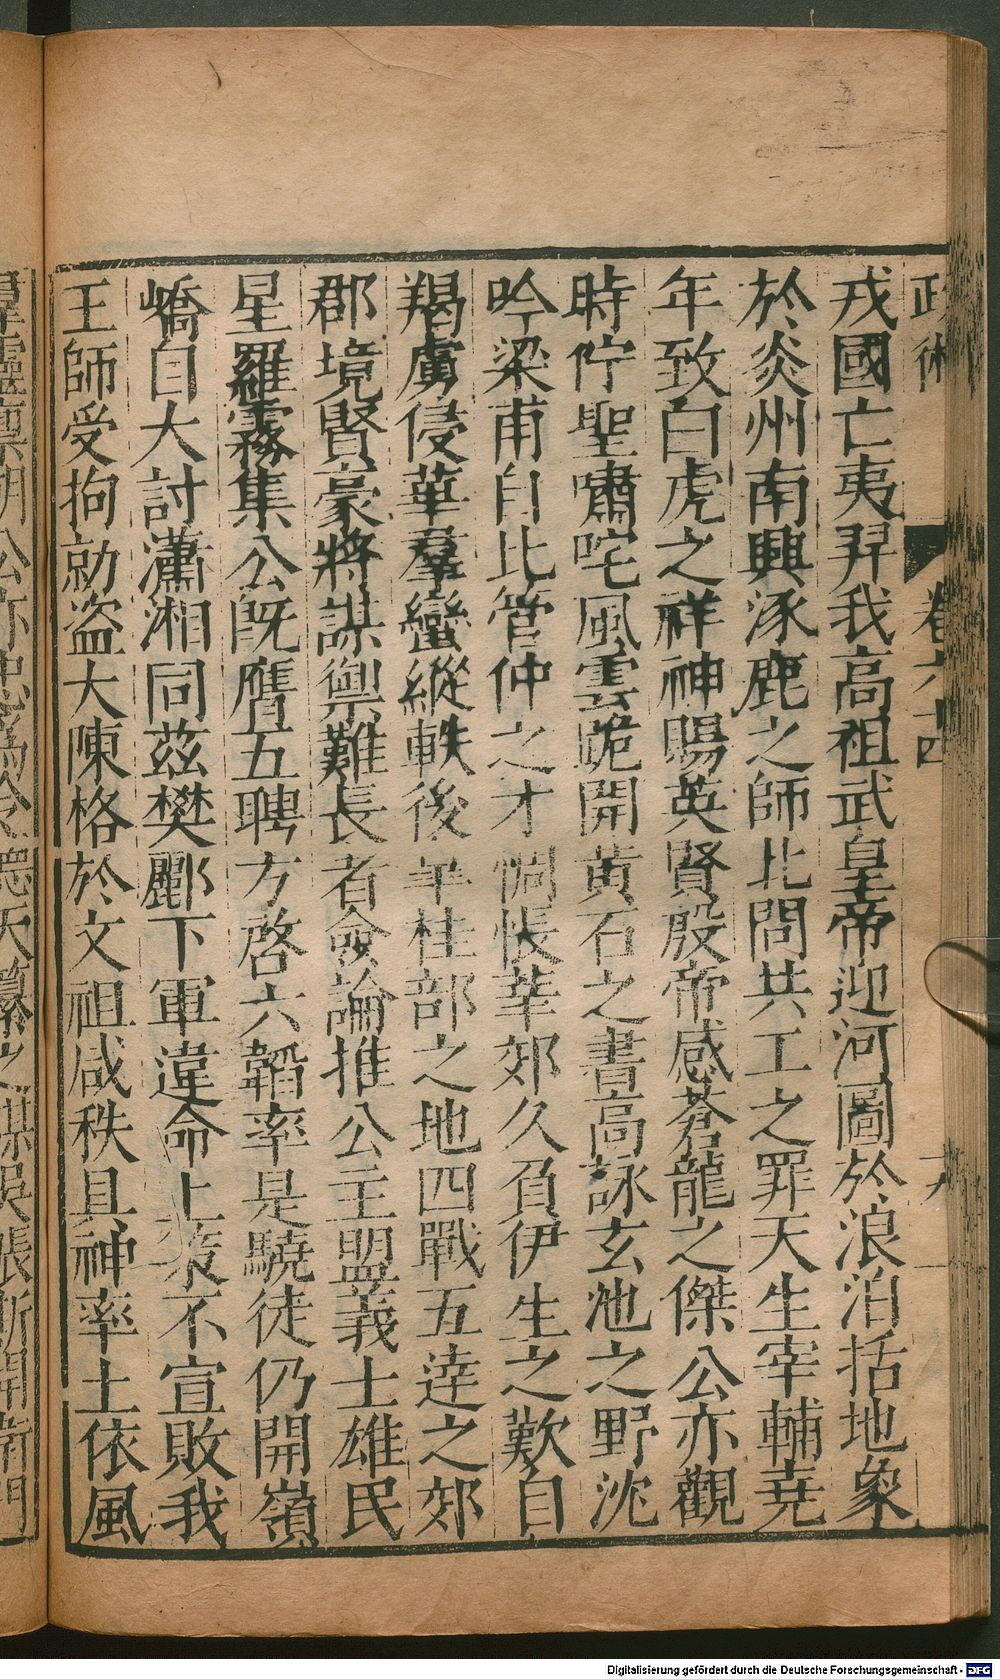 政術 卷六十四 十八
戎國亡夷羿我高祖武皇帝迎河圖於浪泊括地象
於炎州南興涿鹿之師北問共工之罪天生宰輔堯
年致白虎之祥神賜英賢殷帝感蒼龍之傑公亦觀
時佇聖嘯咤風雲跪開黃石之書高詠玄池之野沈
吟梁甫自比管仲之才惆悵莘郊久負伊生之歎自
羯虜侵華羣蠻縱軼後年桂部之地四戰五達之郊
郡境賢豪將謀禦難長者僉論推公主盟義士雄民
星羅霧集公旣膺五聘方啓六韜率是驍徒仍開嶺
嶠自大討瀟湘同茲樊酈下軍違命上策不宣敗我
王師受拘勍盜大陳格於文祖咸秩且神率土依風
Digitalisierung gefördert durch die Deutsche Forschungsgemeinschaft - DFG